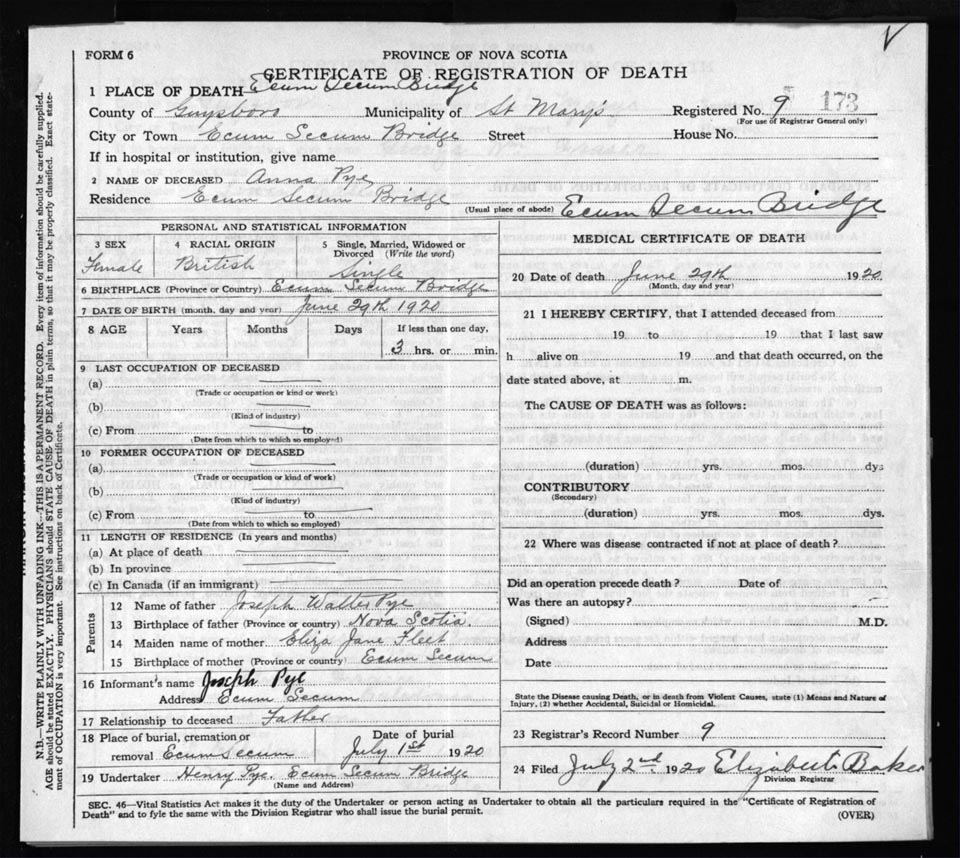 FORM 6
PROVINCE OF NOVA SCOTIA
CERTIFICATE OF REGISTRATION OF DEATH
1 PLACE OF DEATH Ecum Secum Bridge
County of Guysboro Municipality of St Mary's Registered No. 9 173
(For use of Registrar General only)
City or Town Ecum Secum Bridge Street House No.
If in hospital or institution, give name
2 NAME OF DECEASED Anna Pye
Residence Ecum Secum Bridge (Usual place of abode) Ecum Secum Bridge
PERSONAL AND STATISTICAL INFORMATION
3 SEX 4 RACIAL ORIGIN 5 Single, Married, Widowed or Divorced (Write the word)
Female British Single
6 BIRTHPLACE (Province or Country) Ecum Secum Bridge
7 DATE OF BIRTH (month, day and year) June 29th 1920
8 AGE Years Months Days If less than one day,
3 hrs. or min.
9 LAST OCCUPATION OF DECEASED
(a)
(Trade or occupation or kind or work)
(b)
(Kind of industry)
(c) From to
(Date from which to which so employed)
10 FORMER OCCUPATION OF DECEASED
(a)
(Trade or occupation or kind of work)
(b)
(Kind of industry)
(c) From to
(Date from which to which so employed)
11 LENGTH OF RESIDENCE (In years and months)
(a) At place of death
(b) In province
(c) In Canada (if an immigrant)
Parents
12 Name of father Joseph Walter Pye
13 Birthplace of father (Province or country) Nova Scotia.
14 Maiden name of mother Eliza Jane Fleet
15 Birthplace of mother (Province or country) Ecum Secum
16 Informant's name Joseph Pye
Address Ecum Secum
17 Relationship to deceased Father
18 Place of burial, cremation or Date of burial
removal Ecum Secum July 1st 1920
19 Undertaker Henry Pye. Ecum Secum Bridge
(Name and Address)
MEDICAL CERTIFICATE OF DEATH
20 Date of death June 29th 1920
(Month, day and year)
21 I HEREBY CERTIFY, that I attended deceased from
19 to 19 that I last saw
h alive on 19 and that death occurred, on the
date stated above, at m.
The CAUSE OF DEATH was as follows:
(duration) yrs. mos. dys
CONTRIBUTORY
(Secondary)
(duration) yrs. mos. dys.
22 Where was disease contracted if not at place of death?
Did an operation precede death? Date of
Was there an autopsy?
(Signed) M.D.
Address
Date
State the Disease causing Death, or in death from Violent Causes, state (1) Means and Nature of
Injury, (2) whether Accidental, Suicidal or Homicidal.
23 Registrar's Record Number 9
24 Filed July 2nd. 1920 Elizabeth Baker
Division Registrar
SEC. 46—Vital Statistics Act makes it the duty of the Undertaker or person acting as Undertaker to obtain all the particulars required in the "Certificate of Registration of
Death" and to fyle the same with the Division Registrar who shall issue the burial permit. (OVER)
N.B.—WRITE PLAINLY WITH UNFADING INK—THIS IS A PERMANENT RECORD. Every item of information should be carefully supplied.
AGE should be stated EXACTLY. PHYSICIANS should STATE CAUSE OF DEATH in plain terms, so that it may be properly classified. Exact state-
ment of OCCUPATION is very important. See instructions on back of Certificate.